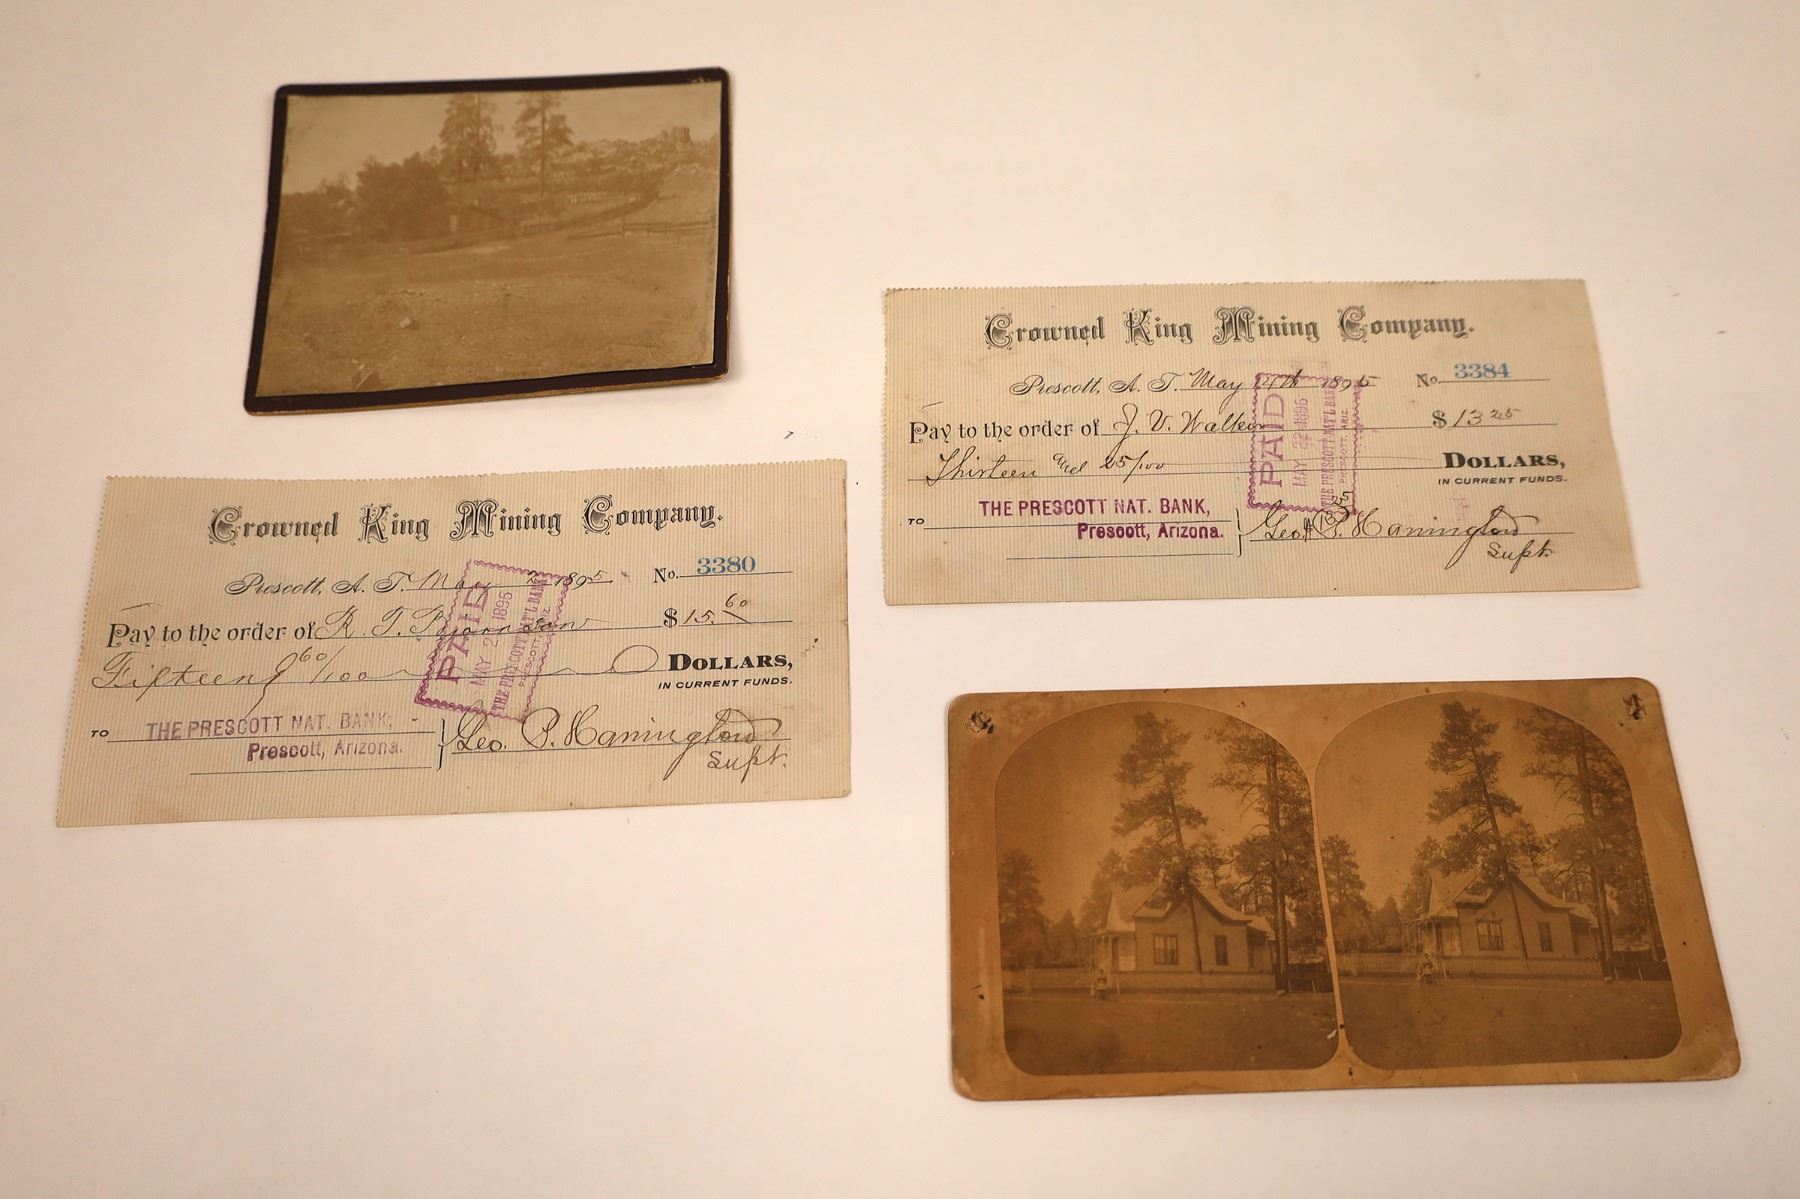 Crowned King Mining Company.
Prescott, A. T. May 1895 No. 3380
Pay to the order of R. T. $15.60
Fifteen & 60/100 DOLLARS,
IN CURRENT FUNDS.
TO THE PRESCOTT NAT. BANK,
Prescott, Arizona.
Geo. P. Harrington
Supt.
PAID
MAY 2 1895
THE PRESCOTT NAT'L BANK
PRESCOTT, ARIZ
Crowned King Mining Company.
Prescott, A. T. May 14th 1895 No. 3384
Pay to the order of J. V. Walker $13 25
Thirteen and 25/100 DOLLARS,
IN CURRENT FUNDS.
TO THE PRESCOTT NAT. BANK,
Prescott, Arizona.
Geo. P. Harrington
Supt.
PAID
MAY 22 1895
THE PRESCOTT NAT'L BANK
PRESCOTT, ARIZ